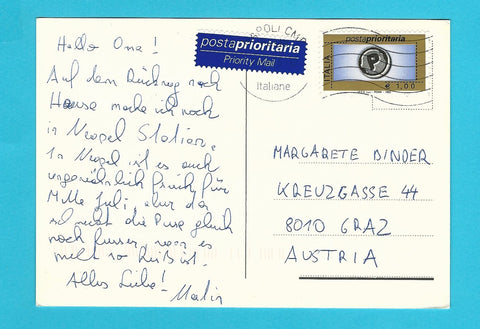 Hallo Oma!
Auf dem Rückweg nach
Hause mache ich noch
in Neapel Station.
In Neapel ist es auch
ungewöhnlich frisch für
Mitte Juli, aber das
ist
nach Hause wenn es
nicht so heiß ist.
Alles Liebe!
Martin
postaprioritaria
Priority Mail
NAPOLI CMP
Italiane
postaprioritaria
ITALIA
P
€ 1,00
MARGARETE BINDER
KREUZGASSE 44
8010 GRAZ
AUSTRIA